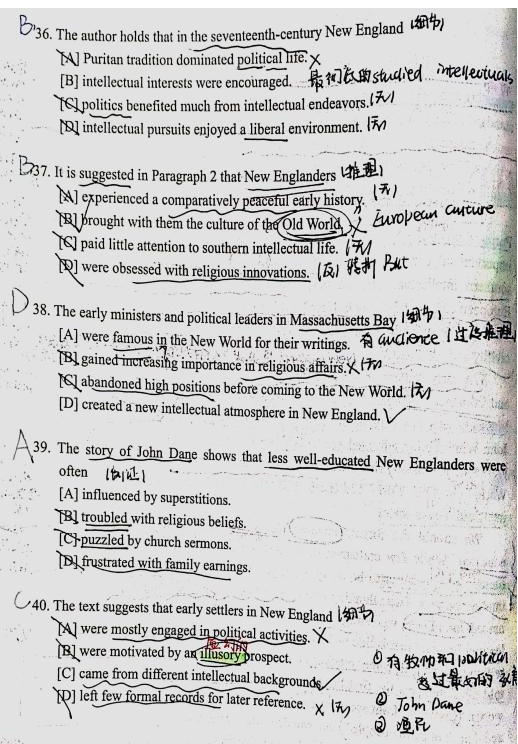 B 36. The author holds that in the seventeenth-century New England (细节)
[A] Puritan tradition dominated political life. ×
[B] intellectual interests were encouraged. studied intellectuals
[C] politics benefited much from intellectual endeavors. (无)
[D] intellectual pursuits enjoyed a liberal environment. (无)
B 37. It is suggested in Paragraph 2 that New Englanders (推理)
[A] experienced a comparatively peaceful early history. (无)
[B] brought with them the culture of the Old World. European culture
[C] paid little attention to southern intellectual life. (无)
[D] were obsessed with religious innovations. (反) 转折 But
D 38. The early ministers and political leaders in Massachusetts Bay (细节)
[A] were famous in the New World for their writings. 有 audience (过度推理)
[B] gained increasing importance in religious affairs. × (无)
[C] abandoned high positions before coming to the New World. (无)
[D] created a new intellectual atmosphere in New England. ✓
A 39. The story of John Dane shows that less well-educated New Englanders were
often (例证)
[A] influenced by superstitions.
[B] troubled with religious beliefs.
[C] puzzled by church sermons.
[D] frustrated with family earnings.
C 40. The text suggests that early settlers in New England (细节)
[A] were mostly engaged in political activities. ×
[B] were motivated by an illusory prospect.
[C] came from different intellectual backgrounds. ✓
[D] left few formal records for later reference. × (无)
① 有牧师和 political
② John Dane
③